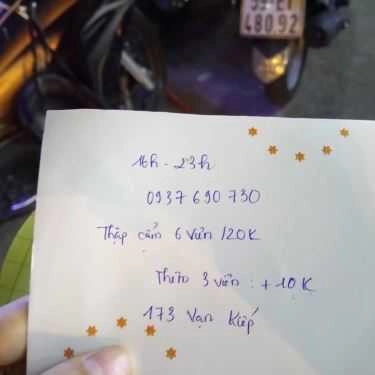 480.92
16h - 23h
0937 690 730
Thập cẩm 6 viên 120K
Thêm 3 viên : + 10K
173 Vạn Kiếp